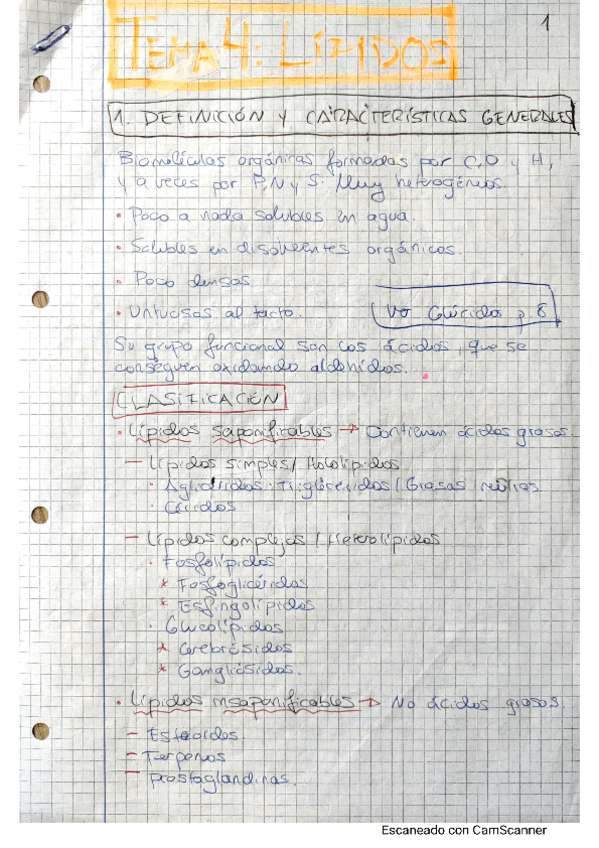 1
TEMA 4: LÍPIDOS
1. DEFINICIÓN Y CARACTERÍSTICAS GENERALES
Biomoléculas orgánicas formadas por C, O y H,
y a veces por P, N y S. Muy heterogéneos.
• Poco a nada solubles en agua.
• Solubles en disolventes orgánicos.
• Poco densos
• Untuosas al tacto.
Glúcidos p. 8
Su grupo funcional son los ácidos, que se
conseguen oxidando aldehídos.
CLASIFICACIÓN
• Lípidos saponificables → Contienen ácidos grasos.
– Lípidos simples / Hololípidos
· Triglicéridos / Grasas
· Céridos
– Lípidos complejos / Heterolípidos
· Fosfolípidos
* Fosfoglicéridos
* Esfingolípidos
· Glucolípidos
* Cerebrósidos
* Gangliósidos.
• Lípidos insaponificables → No ácidos grasos.
– Esteroides.
– Terpenos
– Prostaglandinas.
Escaneado con CamScanner